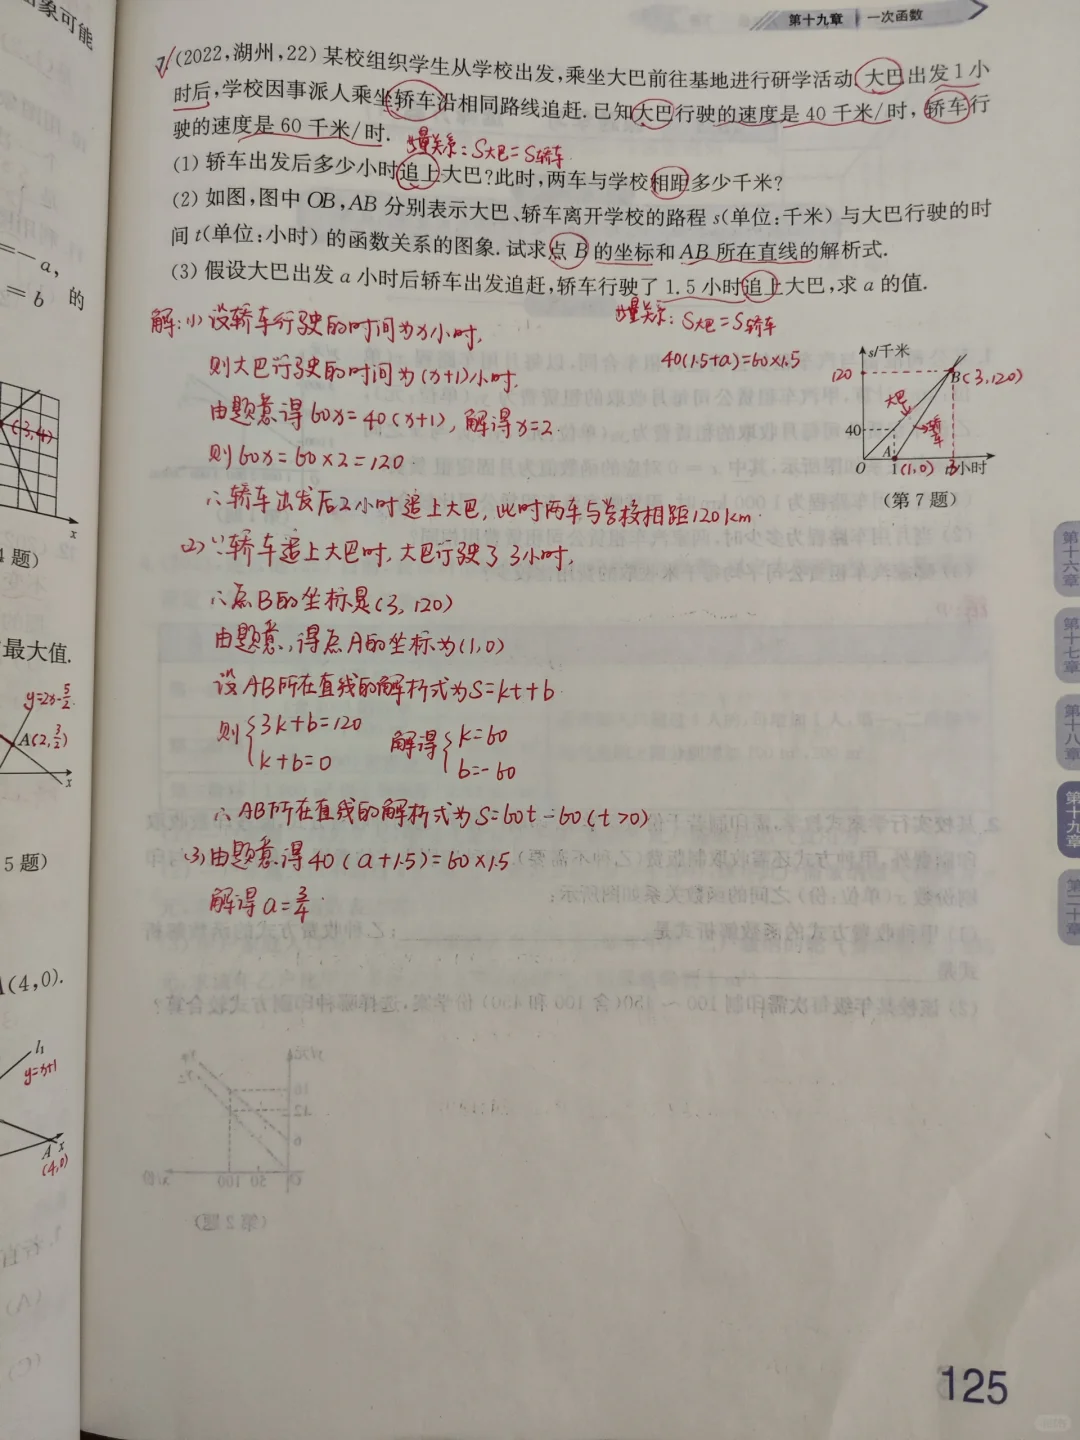 象可能
第十九章 一次函数
7.(2022,湖州,22)某校组织学生从学校出发,乘坐大巴前往基地进行研学活动.大巴出发1小
时后,学校因事派人乘坐轿车沿相同路线追赶.已知大巴行驶的速度是40千米/时,轿车行
驶的速度是60千米/时.
量关系:S大巴=S轿车
(1)轿车出发后多少小时追上大巴?此时,两车与学校相距多少千米?
(2)如图,图中OB,AB分别表示大巴、轿车离开学校的路程s(单位:千米)与大巴行驶的时
间t(单位:小时)的函数关系的图象.试求点B的坐标和AB所在直线的解析式.
(3)假设大巴出发a小时后轿车出发追赶,轿车行驶了1.5小时追上大巴,求a的值.
量关系:S大巴=S轿车
40(1.5+a)=60×1.5
解:(1)设轿车行驶的时间为x小时,
则大巴行驶的时间为(x+1)小时,
由题意得60x=40(x+1),解得x=2.
则60x=60×2=120.
∴轿车出发后2小时追上大巴,此时两车与学校相距120km.
(2)∵轿车追上大巴时,大巴行驶了3小时,
∴点B的坐标是(3,120)
由题意,得点A的坐标为(1,0)
设AB所在直线的解析式为S=kt+b.
则{3k+b=120 解得{k=60
k+b=0 b=-60
∴AB所在直线的解析式为S=60t-60(t>0)
(3)由题意得40(a+1.5)=60×1.5
解得a=3/4.
s/千米
120
B(3,120)
大巴
轿车
40
A
O 1 (1,0) 3 小时
(第7题)
=-a,
=b 的
(-3,4)
x
4题)
最大值.
y=2x-5/2
A(2,3/2)
x
5题)
A(4,0).
l₁
y=x+1
A x
(4,0)
第十六章
第十七章
第十八章
第十九章
第二十章
125